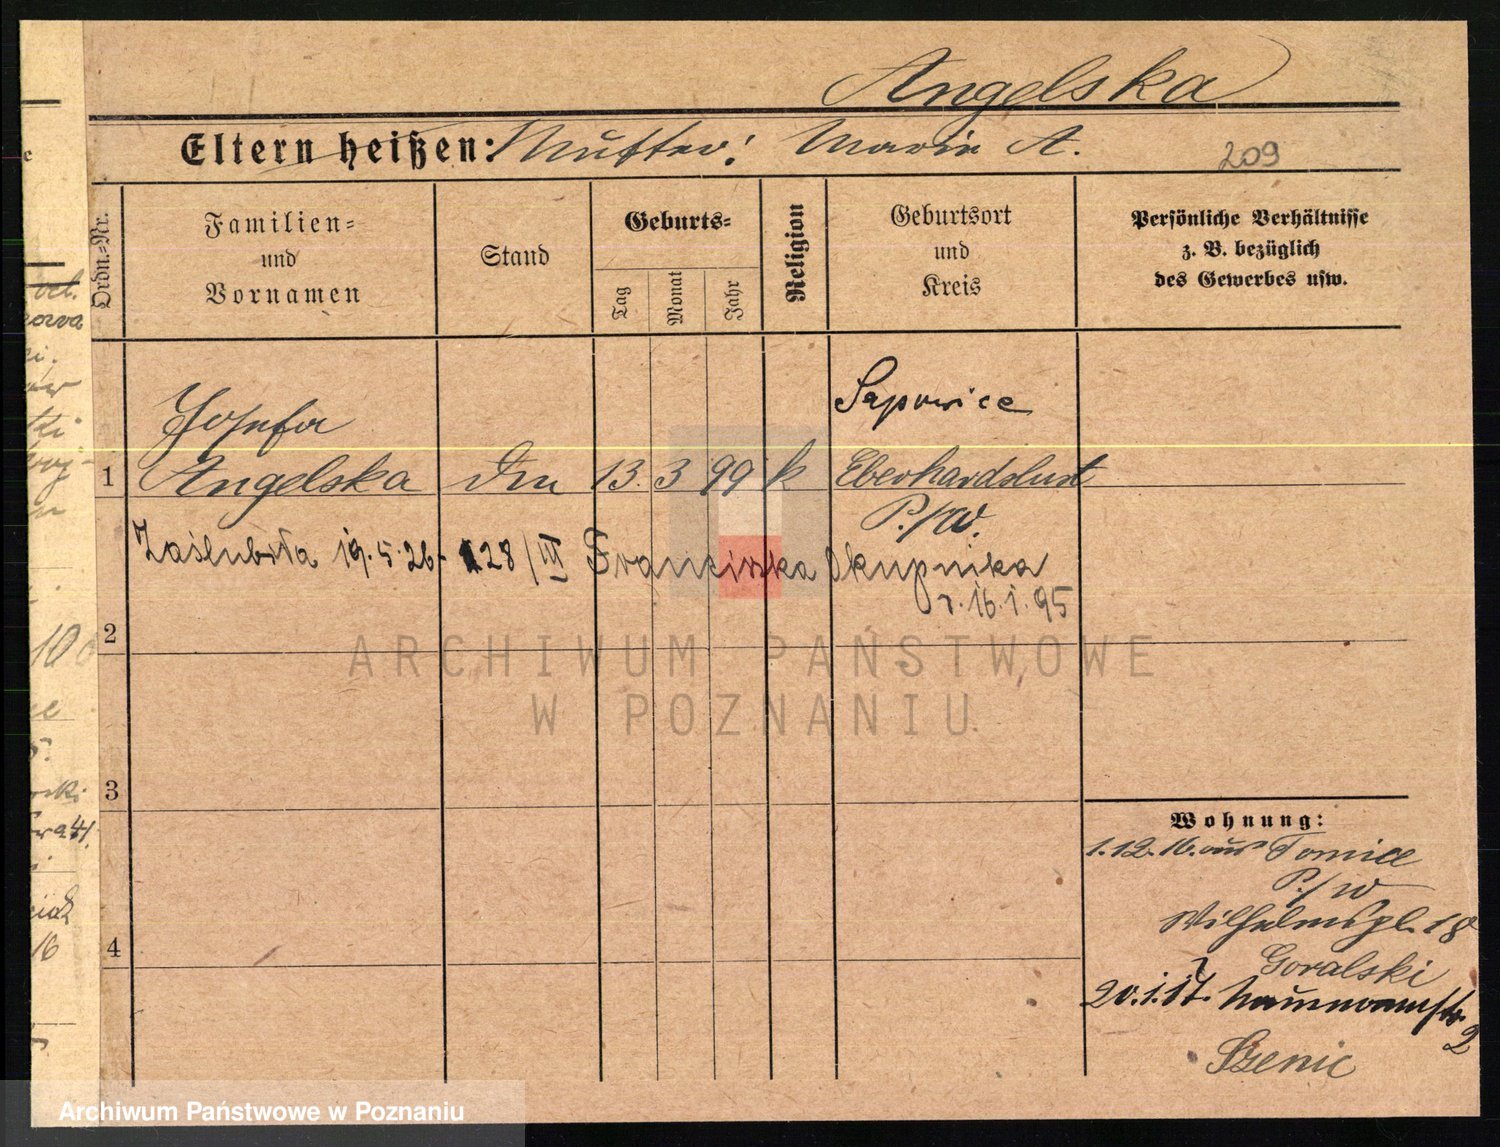 Angelska
Eltern heißen: Mutter: Marie A.
209
Ordn.-Nr.
Familien-
und
Vornamen
Stand
Geburts-
Tag
Monat
Jahr
Religion
Geburtsort
und
Kreis
Persönliche Verhältnisse
z. B. bezüglich
des Gewerbes usw.
Sapowice
Josefa
1 Angelska 13. 3 99 k Eberhardslust
P./W.
Zaślubiła 19.5.26. 128/III Franciszka Skupnika
r. 16.1.95
2
ARCHIWUM PAŃSTWOWE
W POZNANIU
3
Wohnung:
1.12.16. aus Tomice
P./W
Wilhelmspl. 18
Goralski
4
20.1.17. Naumannstr.
2
Szenic
Archiwum Państwowe w Poznaniu